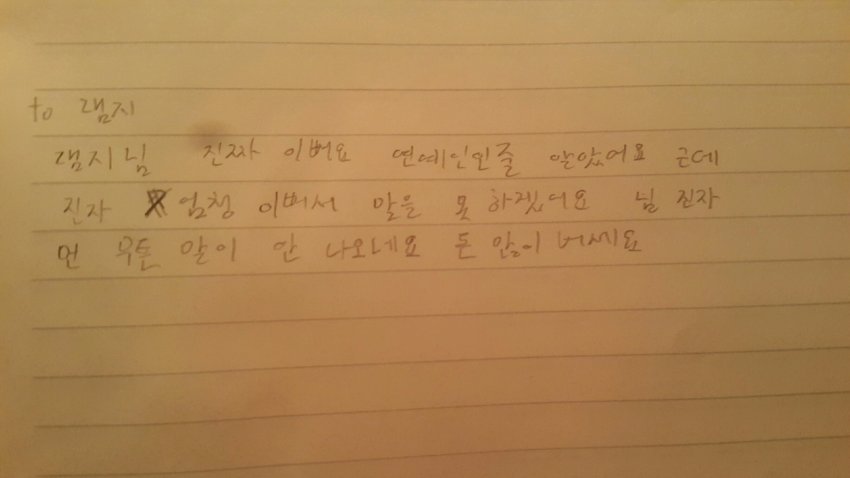 to 갬지
갬지님 진짜 이뻐요 연예인인줄 알았어요 근데
진자 엄청 이뻐서 말을 못 하겠어요 님 진자
먼 무슨 말이 안 나오네요 돈 많이 버세요